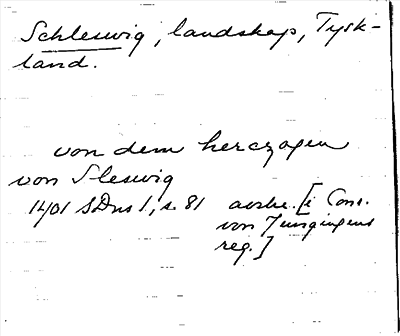 Schleswig, landskap, Tysk-
land.
von dem herczogen
von Sleswig
1401 SDns 1, s. 81 avskr. [i Conr.
von Jungingens
reg.]